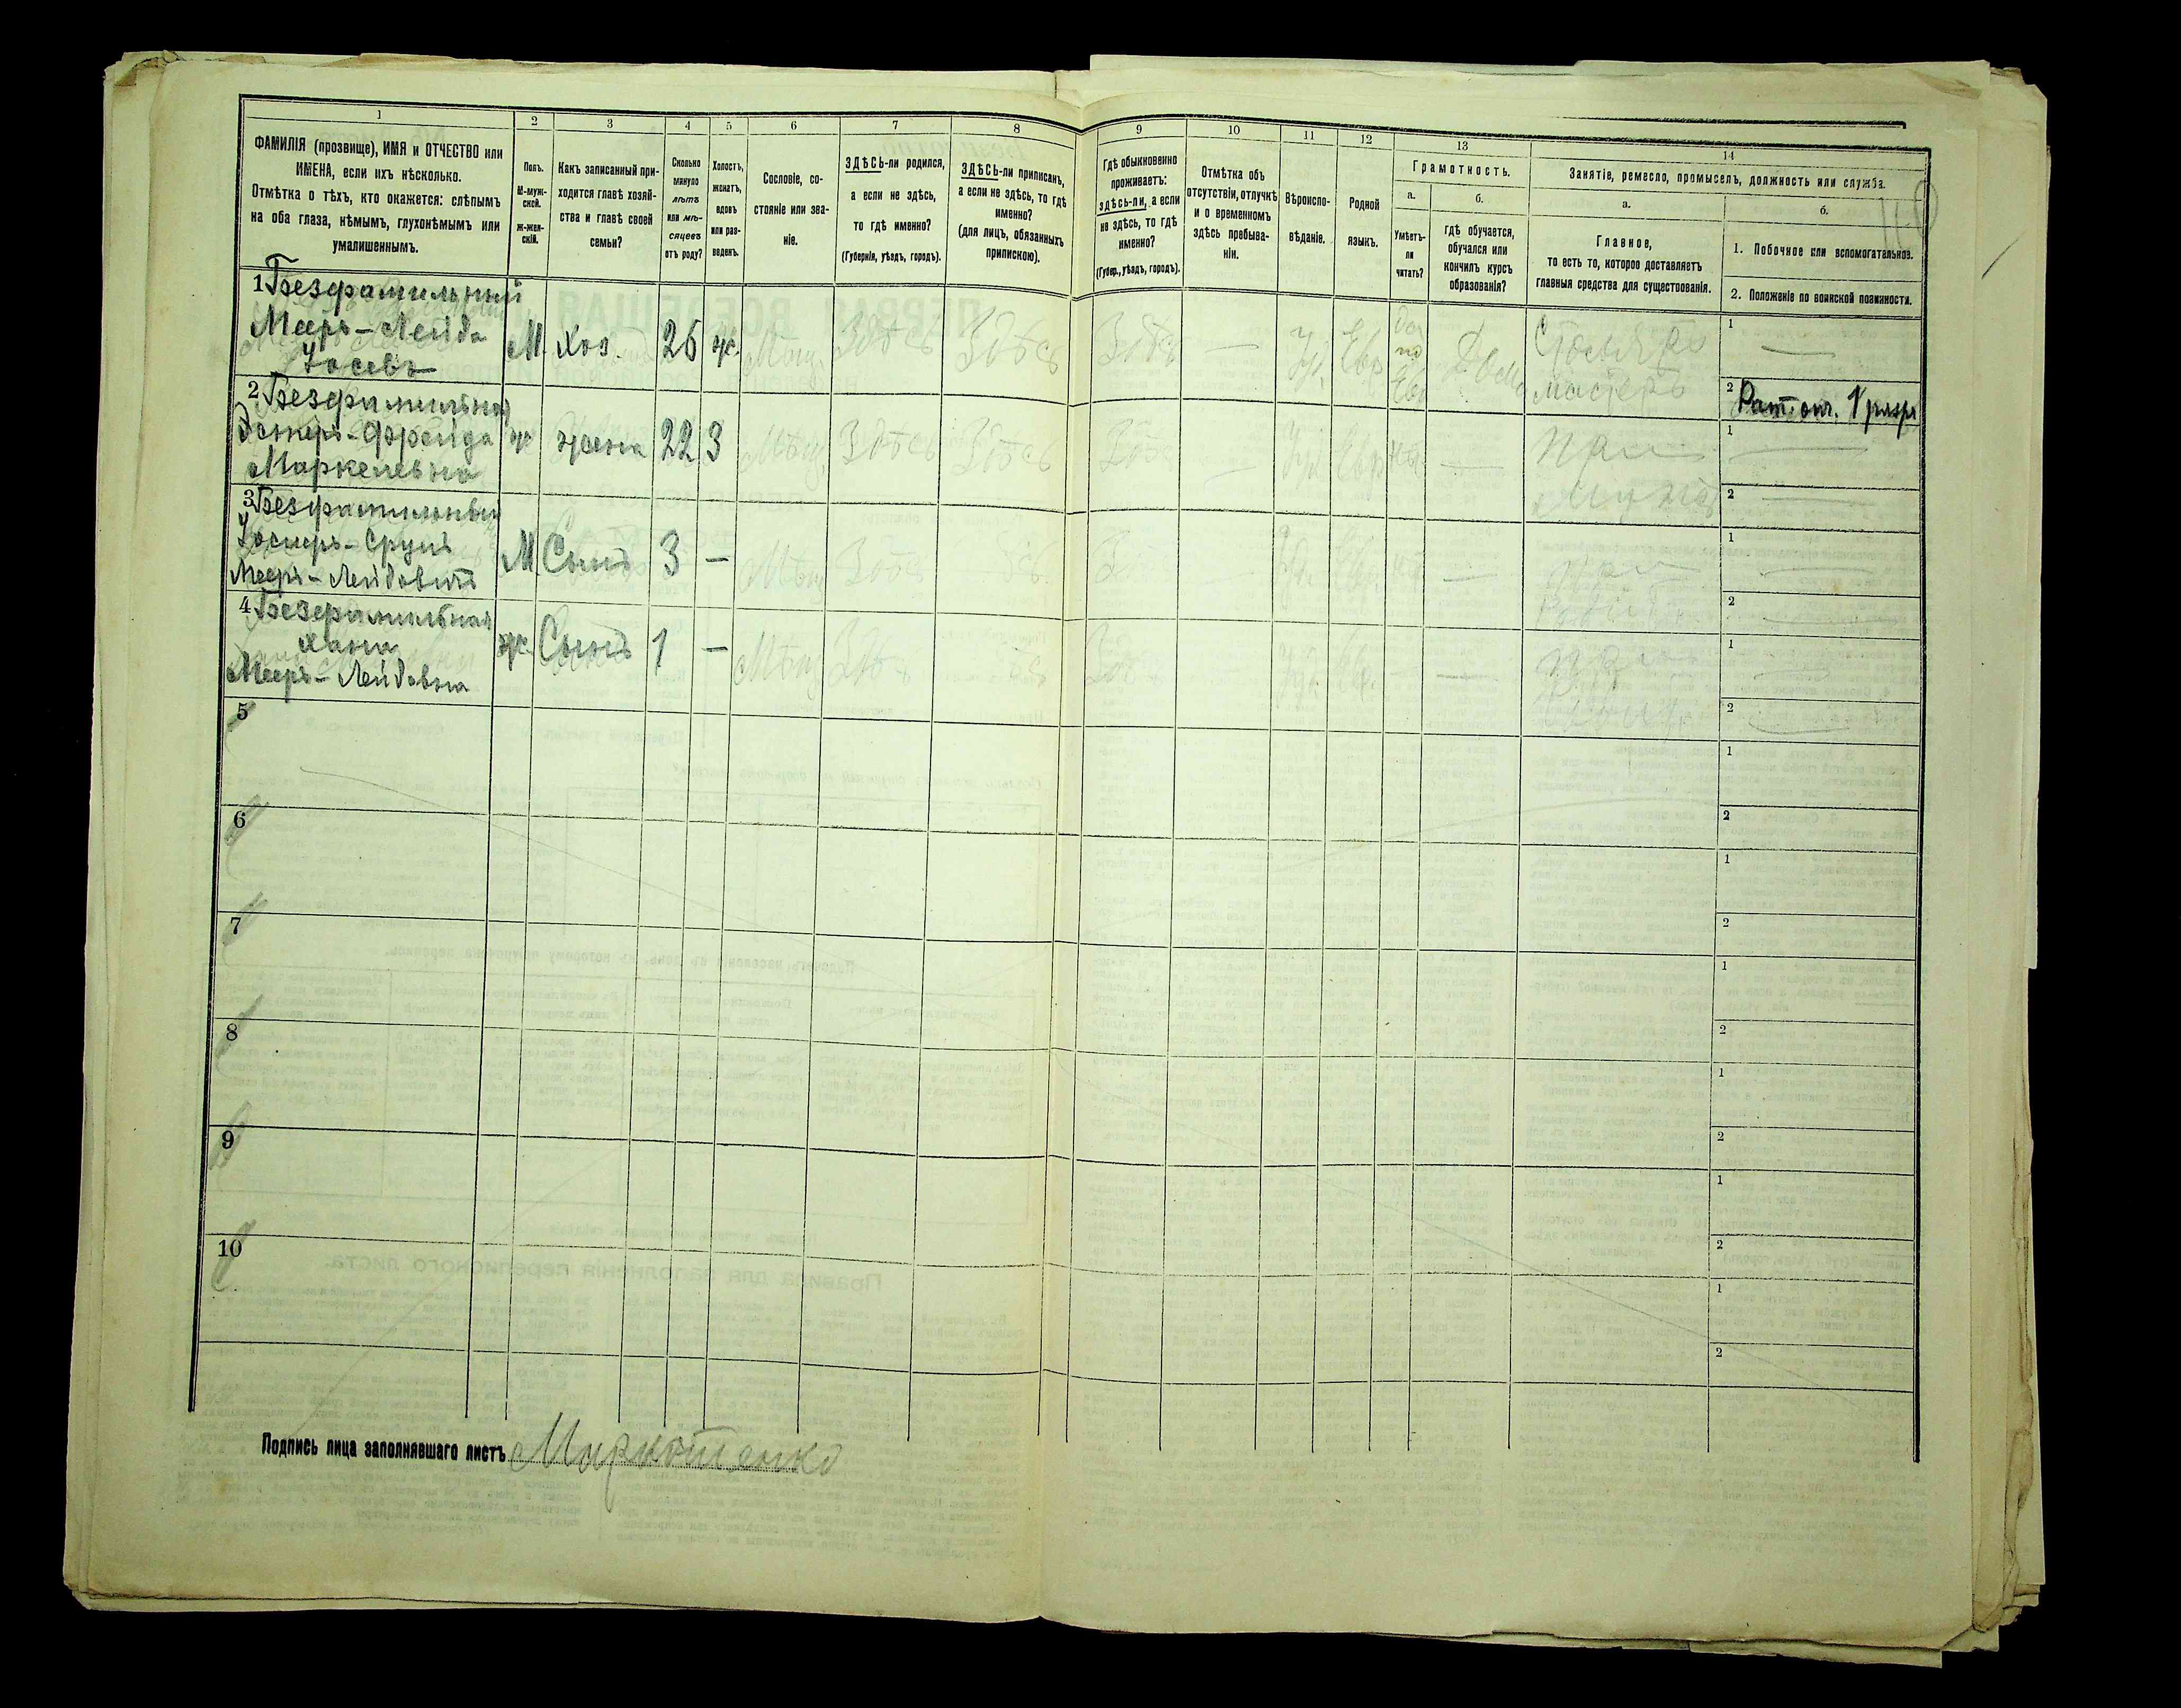 1 2 3 4 5 6 7 8 9 10 11 12 13 14
ФАМИЛІЯ (прозвище), ИМЯ и ОТЧЕСТВО или
ИМЕНА, если ихъ нѣсколько.
Отмѣтка о тѣхъ, кто окажется: слѣпымъ
на оба глаза, нѣмымъ, глухонѣмымъ или
умалишеннымъ.
Полъ.
М-муж-
ской.
Ж-жен-
скій.
Какъ записанный при-
ходится главѣ хозяй-
ства и главѣ своей
семьи?
Сколько
минуло
лѣтъ
или мѣ-
сяцевъ
отъ роду?
Холостъ,
женатъ,
вдовъ
или раз-
веденъ.
Сословіе, со-
стояніе или зва-
ніе.
ЗДѢСЬ-ли родился,
а если не здѣсь,
то гдѣ именно?
(Губернія, уѣздъ, городъ).
ЗДѢСЬ-ли приписанъ,
а если не здѣсь, то гдѣ
именно?
(для лицъ, обязанныхъ
припискою).
Гдѣ обыкновенно
проживаетъ:
здѣсь-ли, а если
не здѣсь, то гдѣ
именно?
(Губер., уѣздъ, городъ).
Отмѣтка объ
отсутствіи, отлучкѣ
и о временномъ
здѣсь пребыва-
ніи.
Вѣроиспо-
вѣданіе.
Родной
языкъ.
Грамотность.
а.
Умѣетъ-
ли
читать?
б.
гдѣ обучается,
обучался или
кончилъ курсъ
образованія?
Занятіе, ремесло, промыселъ, должность или служба.
а.
Главное,
то есть то, которое доставляетъ
главныя средства для существованія.
б.
1. Побочное или вспомогательное.
2. Положеніе по воинской повинности.
1 Безфамильный
Мееръ-Лейда
Іосевъ
М. Хоз. 26 ж. Мѣщ. Здѣсь Здѣсь Здѣсь — Іуд. Евр.
Да
по
Евр
Дома
Столяръ
мастеръ
1 —
2 Рат. оп. 1 разр
2 Безфамильная
Эстеръ-Фрейда
Маркелевна
ж жена 22 З Мѣщ. Здѣсь Здѣсь Здѣсь — Іуд Евр нѣ —
При
мужѣ
1 —
2 —
3 Безфамильный
Мееръ-Лейдовичъ
М. Сынъ 3 — Мѣщ Здѣсь Іуд. Евр нѣ —
При
1 —
2 —
4 Безфамильная
Хана
Мееръ-Лейдовна
ж. 1 — Мѣщ Іуд Евр. — —
При
1 —
2 —
5
1
2
6
1
2
7
1
2
8
1
2
9
1
2
10
1
2
Подпись лица заполнявшаго листъ